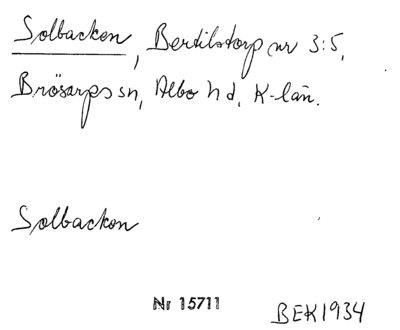 Solbacken, Bertilstorp nr 3:5,
Brösarps sn, Albo hd, K-län.
Solbacken
Nr 15711
BEK1934